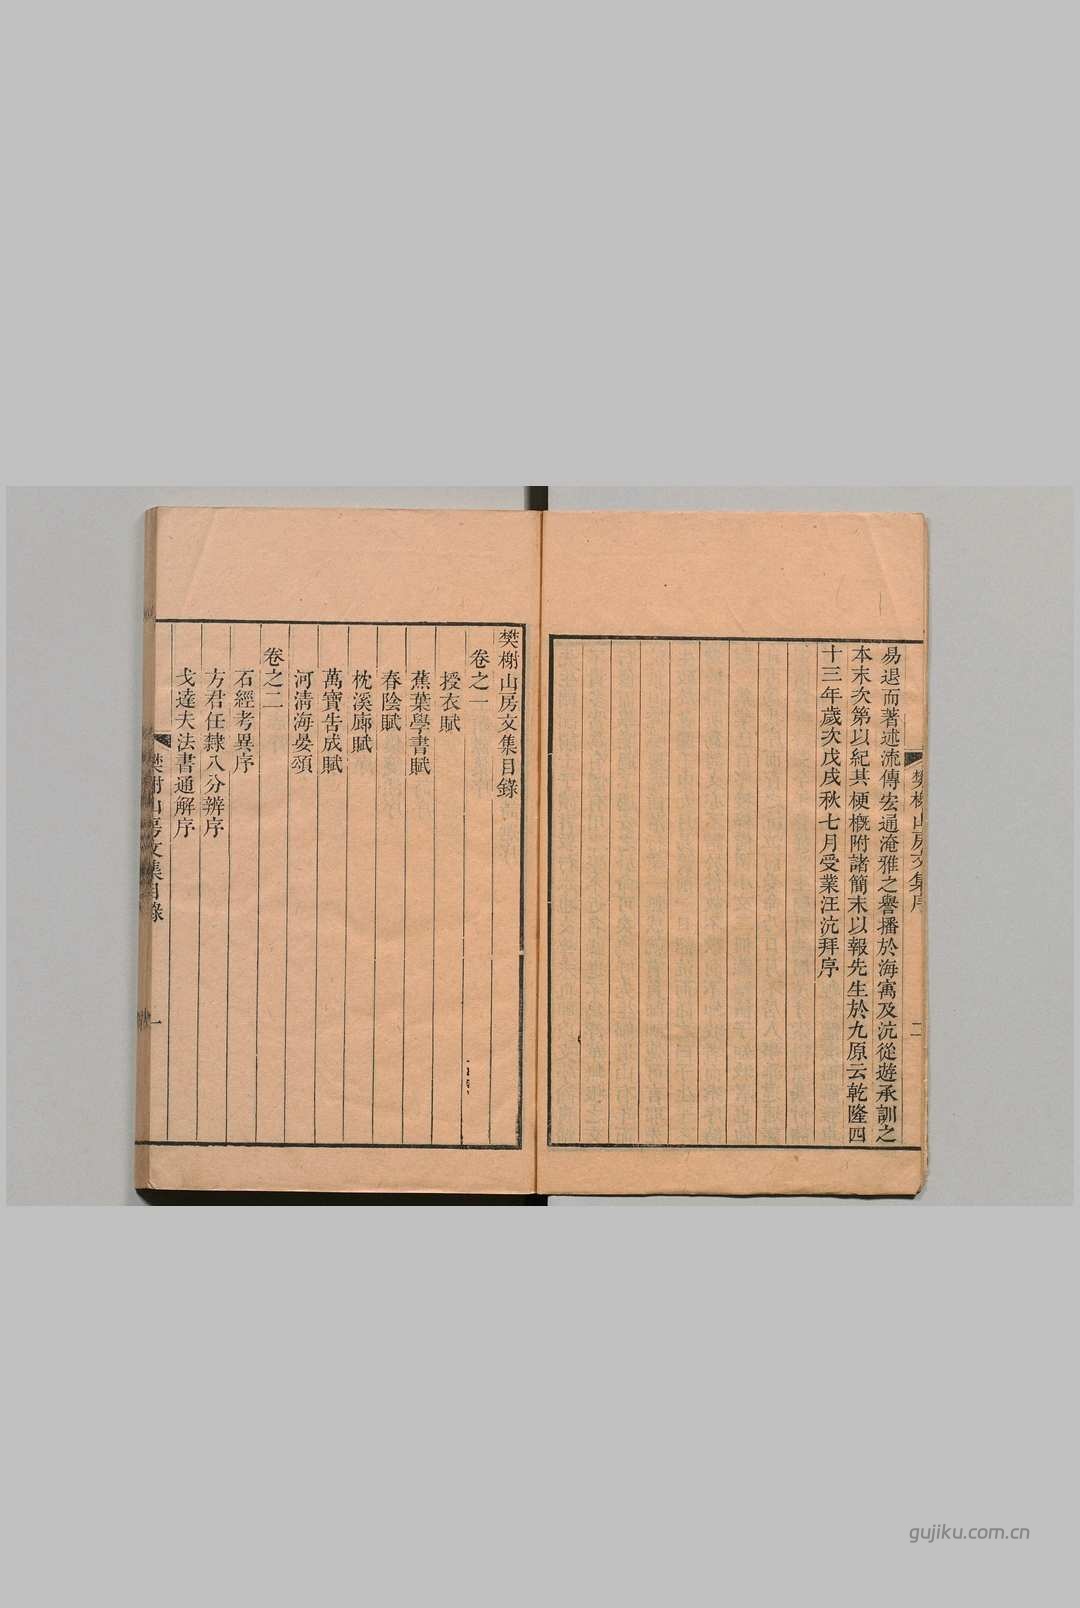 樊榭山房文集序
二
易退而著述流傳宏通淹雅之譽播於海寓及沆從遊承訓之
本末次第以紀其梗概附諸簡末以報先生於九原云乾隆四
十三年歲次戊戌秋七月受業汪沆拜序
樊榭山房文集目錄
卷之一
授衣賦
蕉葉學書賦
春陰賦
枕溪廊賦
萬寶告成賦
河淸海晏頌
卷之二
石經考異序
方君任隸八分辨序
戈達夫法書通解序
樊榭山房文集目錄
一
gujiku.com.cn